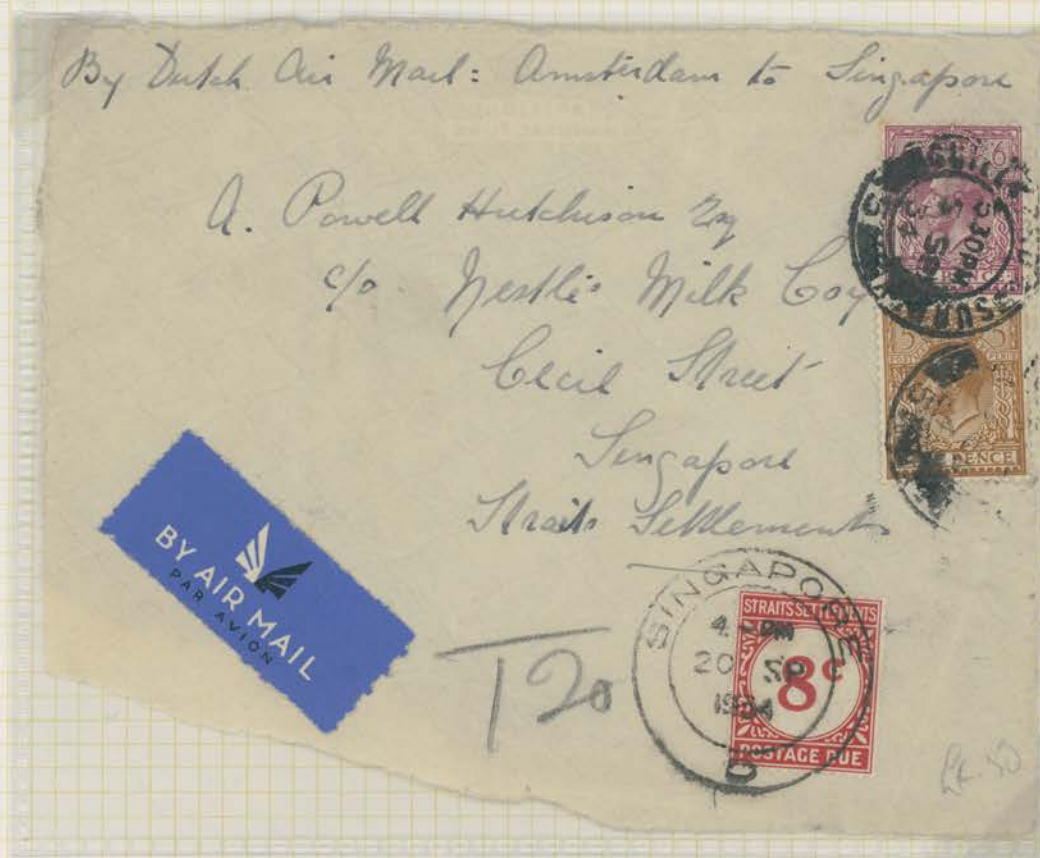 By Dutch Air Mail: Amsterdam to Singapore
A. Powell Hutchison Esq
c/o. Nestlés Milk Coy
Cecil Street
Singapore
Straits Settlements
5.30PM
SP
34
SURREY
PENCE
PENCE
BY AIR MAIL
PAR AVION
T20
SINGAPORE
PM
20 SP
1934
D
STRAITS SETTLEMENTS
8c
POSTAGE DUE